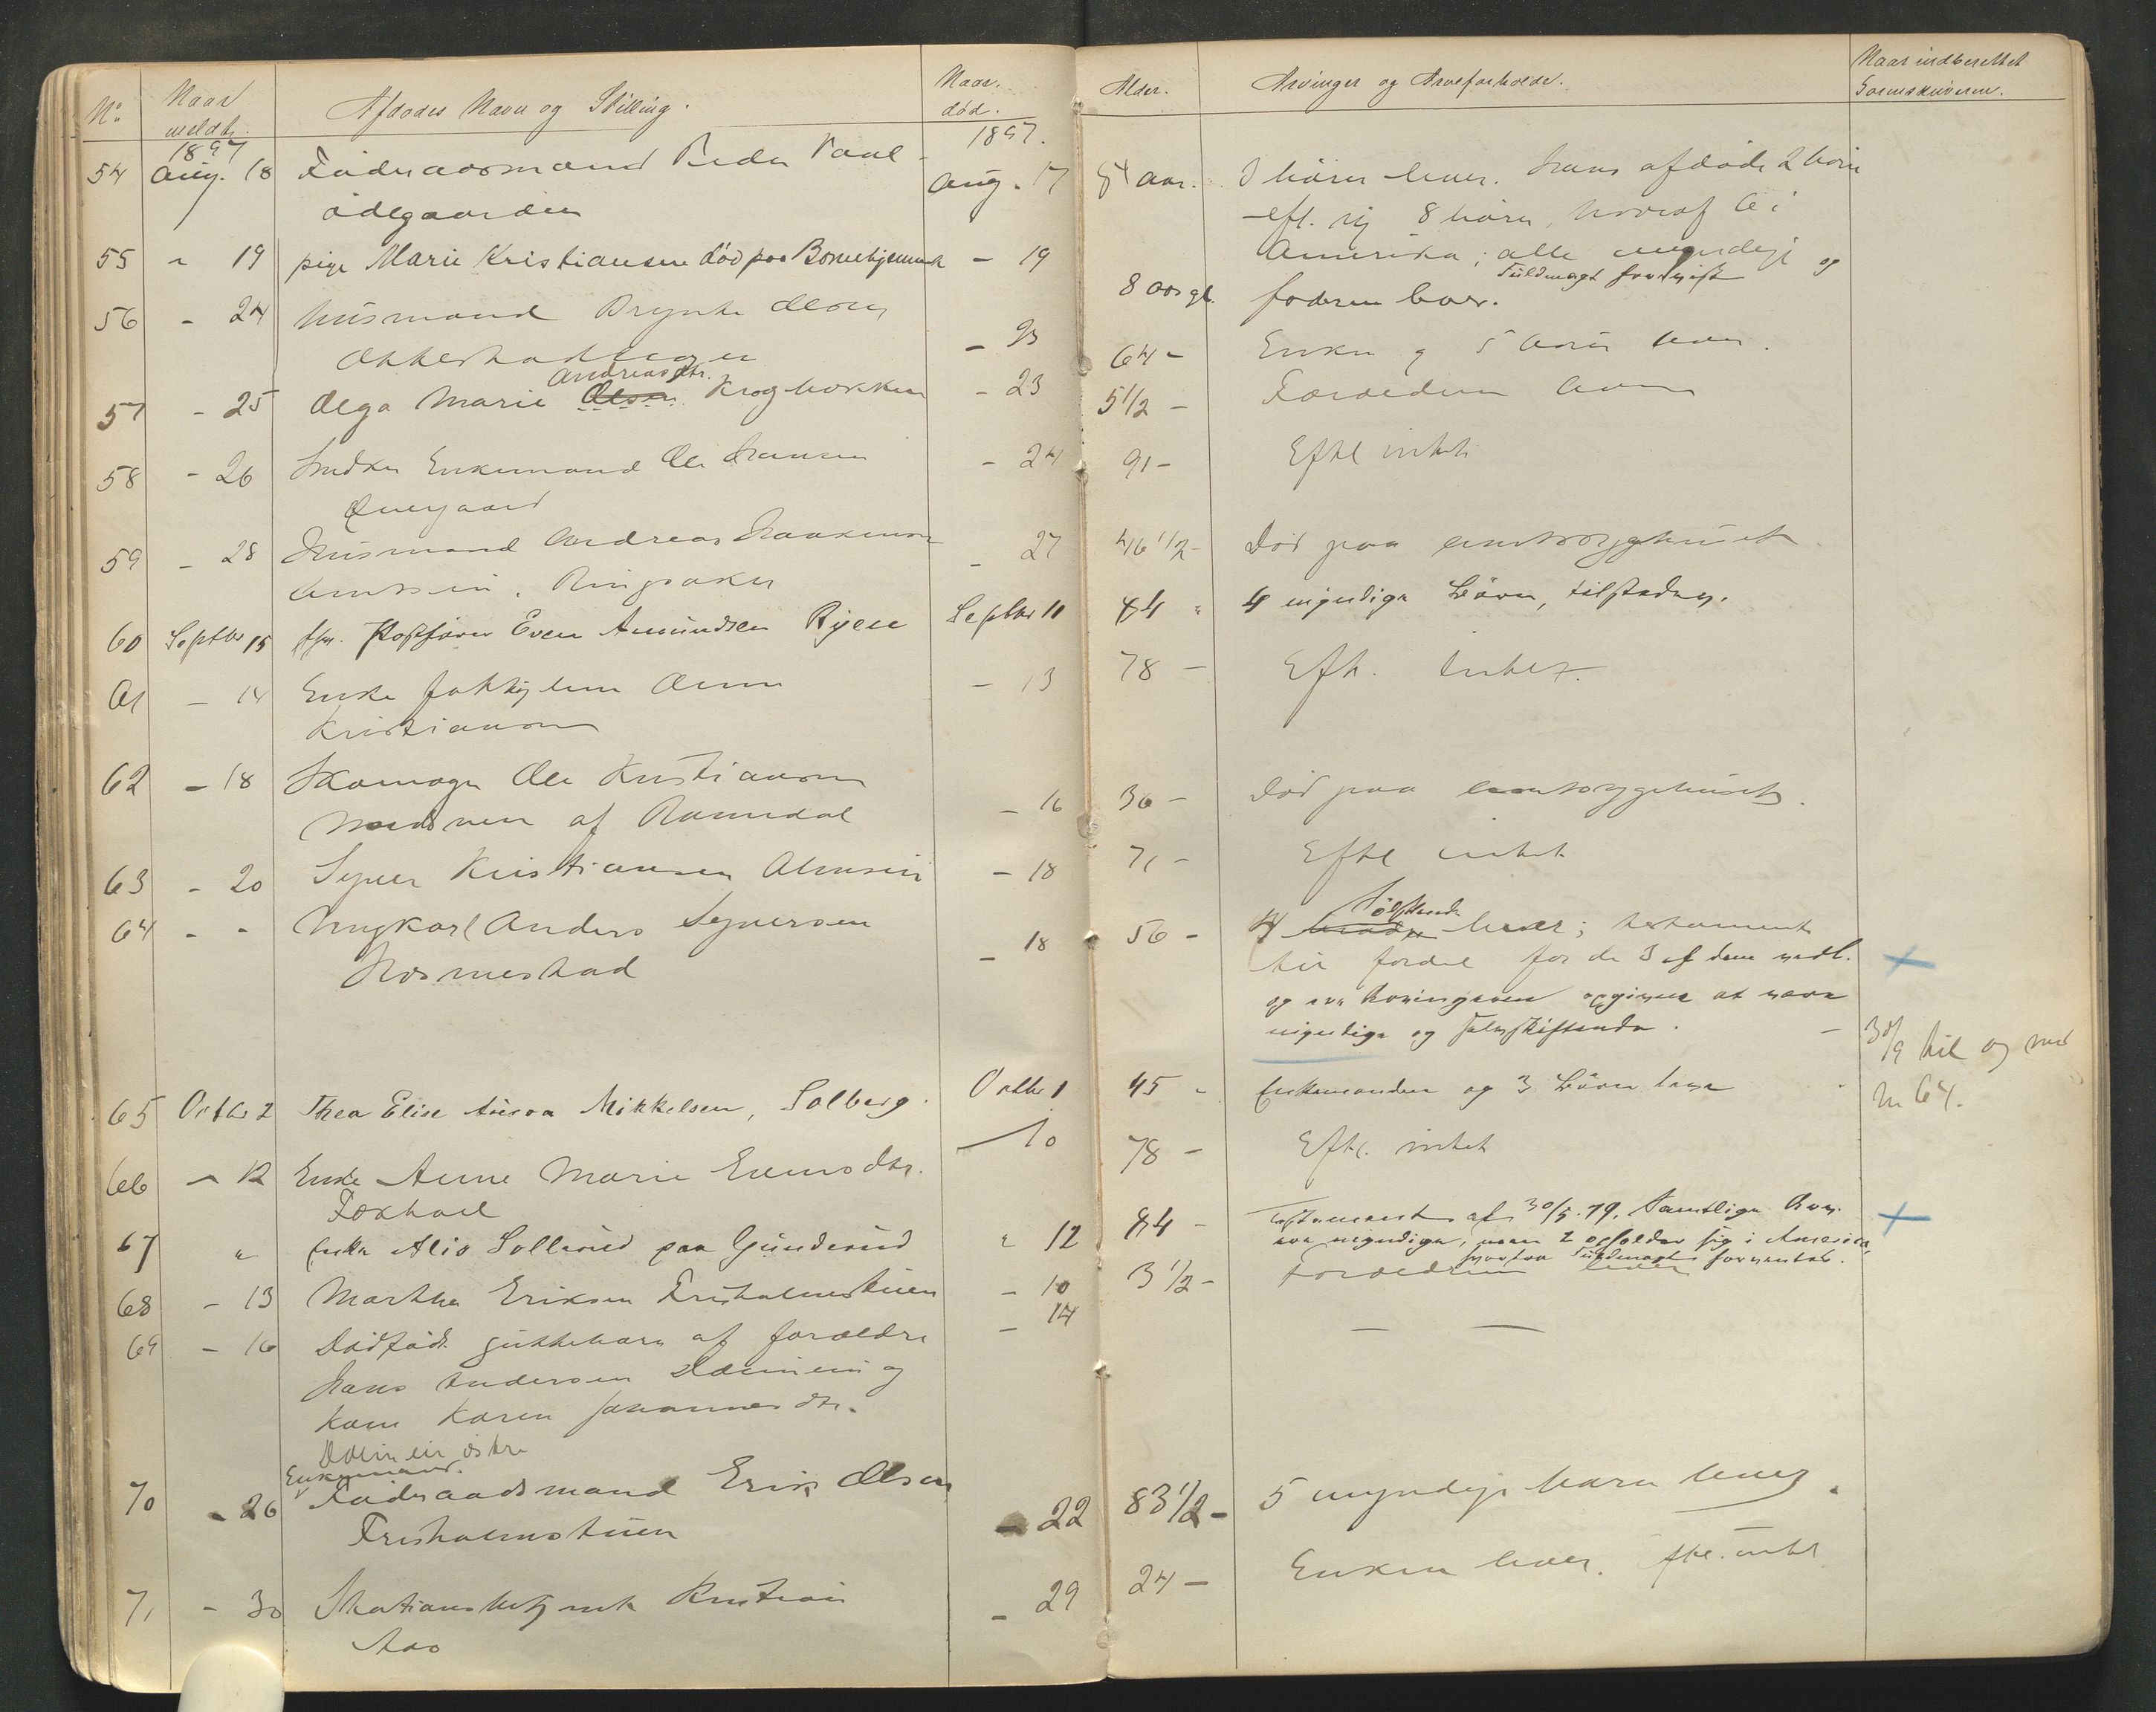 No Naar meldt. Afdødes Navn og Stilling. Naar død. Alder. Arvinger og Arveforholde. Naar indberettet Sorenskriveren.
1897 1897.
54 Aug. 18 Føderaadsmand Peder Paul- Aug. 17 84 aar. 3 børn lever. Hans afdøde 2 børn
ødegaarden eft. sig 8 børn, hvoraf 6 i
Amerika; alle myndige og
Fuldmagt
55 " 19 pige Marie Kristiansen død paa Bonnhjemmet - 19 8 aar gl. faderen lever.
56 - 24 Husmand Brynte Olsen - 23 64 - Enken og 5 børn lever.
57 - 25 Olga Marie Olsen Andreasdtr. Krogbækken - 23 5 1/2 - Forældrene lever
58 - 26 Enkemand Ole Hansen - 24 91 - Eftl intet
59 - 28 Husmand Andreas Haakensen - 27 46 1/2 - Død paa amtssygehuset
Ringsaker
60 Septbr 15 fhv. Postfører Even Amundsen Ryen Septbr 11 84 " 4 myndige Børn, tilstædes.
61 - 14 Enke fattiglem Anne - 13 78 - Eft. intet.
Kristiansen
62 - 18 Skomager Ole Kristiansen - 16 36 - Død paa amtssygehuset.
af Romedal
63 - 20 Syver Kristiansen Almseie - 18 71 - Eftl intet
64 - - Ungkarl Anders Syversen - 18 56 - 4 Søskende lever; testament
Kosmestad til fordel for de 3 af dem vedl.
og Arvingerne opgives at være
myndige og selvskiftende. - 30/9 til og med
N 64.
65 Octbr 2 Thea Elise Aurora Mikkelsen, Solberg. Octbr 1 45 " Enkemanden og 3 Børn leve "
66 - 12 Enke Anne Marie Evensdtr. - 10 78 - Eftl. intet
Foxhoel
67 " Enke Alis Sollerud paa Gunderud " 12 84 - Testament af 30/5 79. Samtlige Arv.
ere myndige, 2 opholder sig i Amerika,
hvorfra Fuldmagt forventes.
68 - 13 Martha Eriksen Frisholmstuen - 10 3 1/2 - Forældrene lever
69 - 16 Dødfødt guttebarn af forældre - 14 - -
Hans Andersen og
Kone Karen Johannesdtr.
østre
Enkemand.
70 - 26 Føderaadsmand Erik Olsen - 22 83 1/2 - 5 myndige børn lever.
Frisholmstuen
71 - 30 Stationsbetjent Kristian - 29 24 - Enken lever. Eftl. intet
Aas